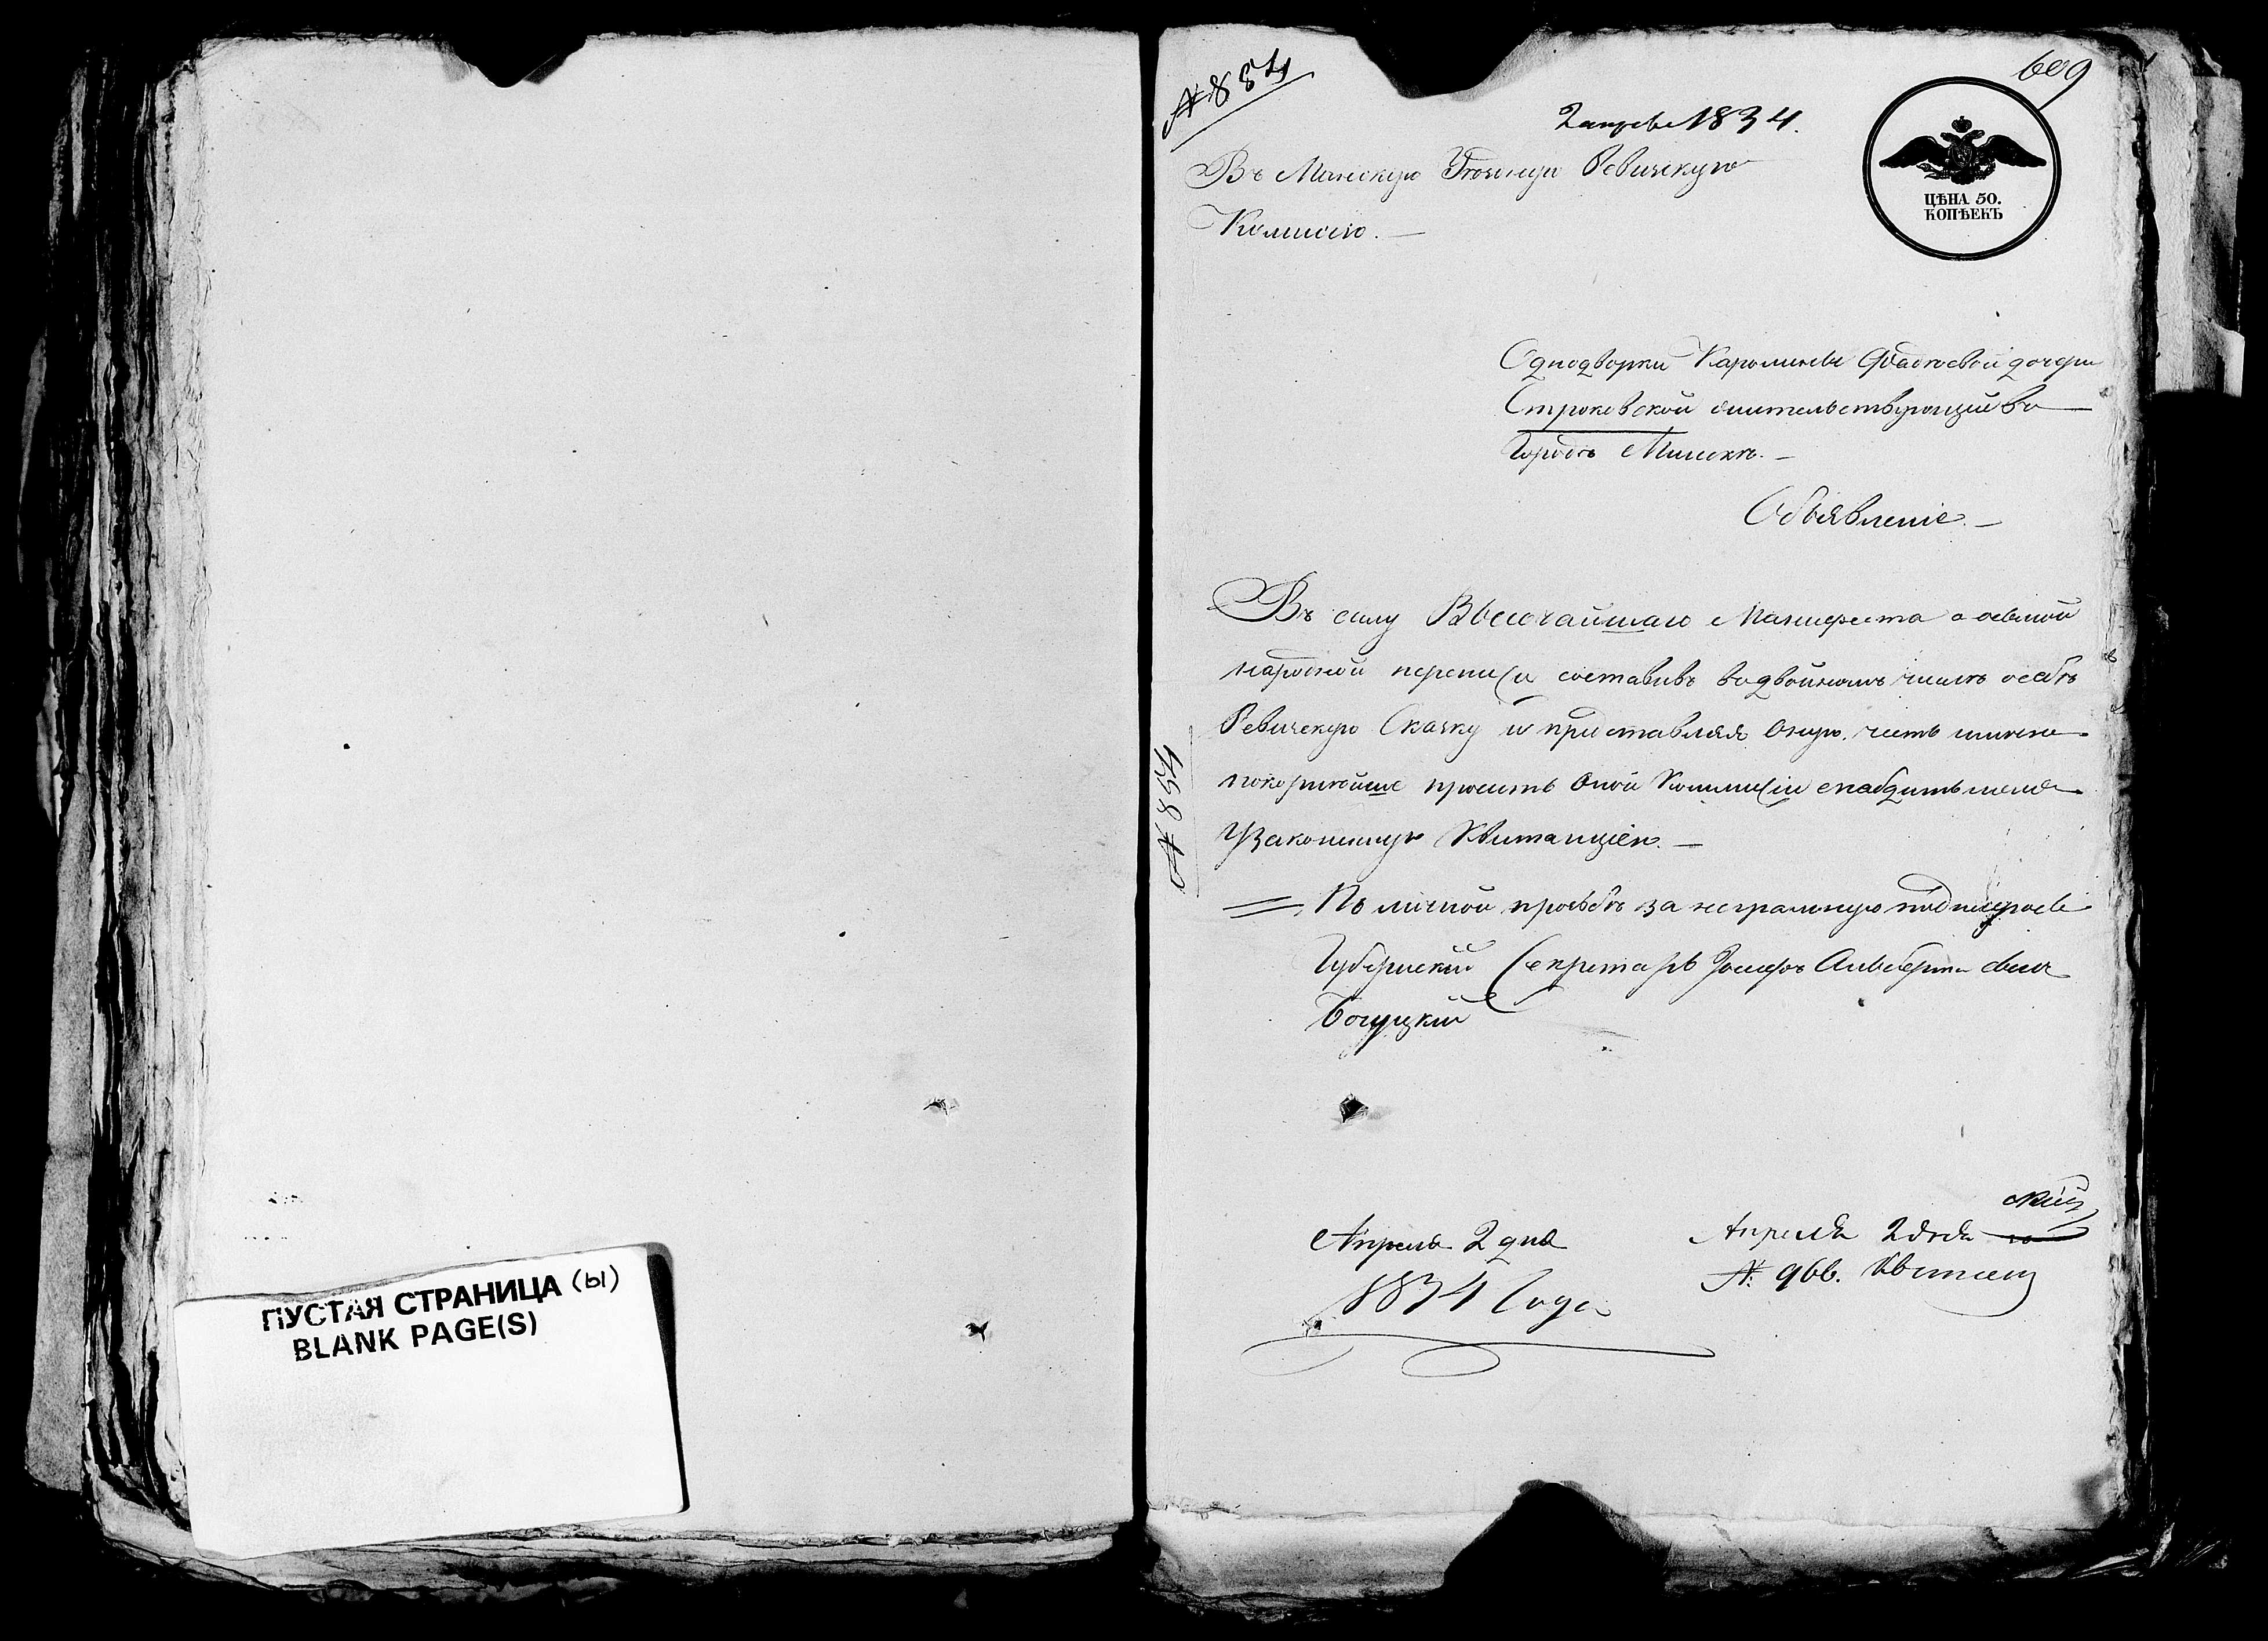 ПУСТАЯ СТРАНИЦА (ы)
BLANK PAGE(S)
№ 854
609
2 апреля 1834.
ЦѢНА 50.
КОПѢЕКЪ
Въ Минскую Ревизскую
Комисію. —
Однодворки Каролины Фадѣевой дочери
Строковской жительствующій во
Городѣ Минскѣ. —
Объявленіе. —
Въ силу Высочайшаго Манифеста о осьмой
народной переписи составивъ въ двойномъ числѣ особѣ
Ревизскую Сказку и представляя оную, честь имѣю
покорнѣйше просить оной Коммисіи снабдить меня
узаконенную Квитанціею. —
№ 854
По личной прозьбѣ за неграмотную подписуюсь
Губернскій Секретарь Іосифъ Альбертовъ сынъ
Богуцкій
Апреля 2 дня
1834 Года
Апреля 2 дня
№ 966.